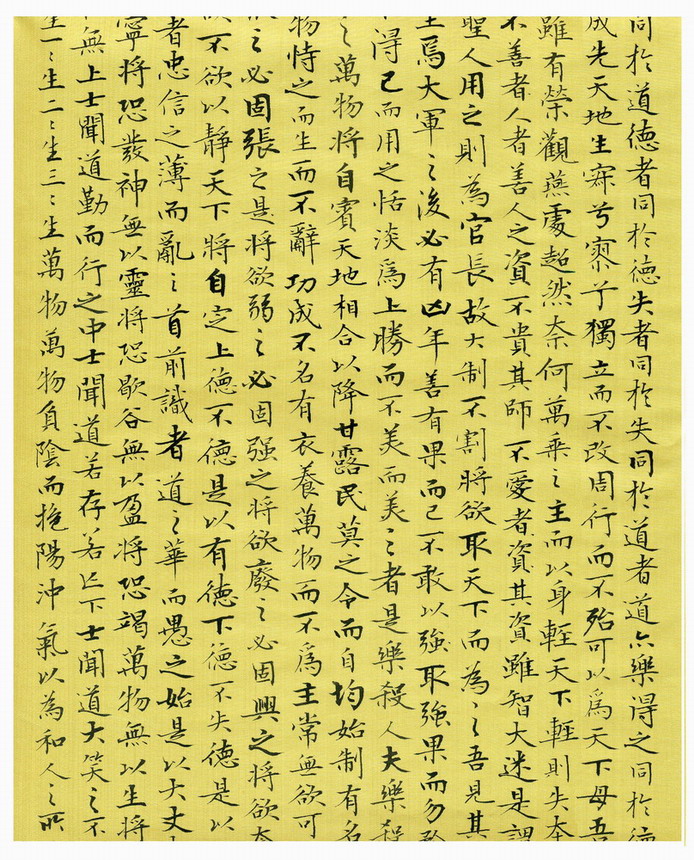 同於道德者同於德失者同於失同於道者道亦樂得之同於德
成先天地生寂兮寥兮獨立而不改周行而不殆可以為天下母吾
雖有榮觀燕處超然奈何萬乘之主而以身輕天下輕則失本
不善者人者善人之資不貴其師不愛者資其資雖智大迷是謂
聖人用之則為官長故大制不割將欲取天下而為之吾見其
焉大軍之後必有凶年善有果而已不敢以強取強果而勿矜
得已而用之恬淡為上勝而不美而美之者是樂殺人夫樂殺
之萬物將自賓天地相合以降甘露民莫之令而自均始制有名
物恃之而生而不辭功成不名有衣養萬物而不為主常無欲可
之必固張之是將欲弱之必固强之將欲廢之必固興之將欲
不欲以靜天下將自定上德不德是以有德下德不失德是以
者忠信之薄而亂之首前識者道之華而愚之始是以大丈
寧將恐發神無以靈將恐歇谷無以盈將恐竭萬物無以生將
無上士聞道勤而行之中士聞道若存若亡下士聞道大笑之不
生一〻生二〻生三〻生萬物萬物負陰而抱陽沖氣以為和人之所